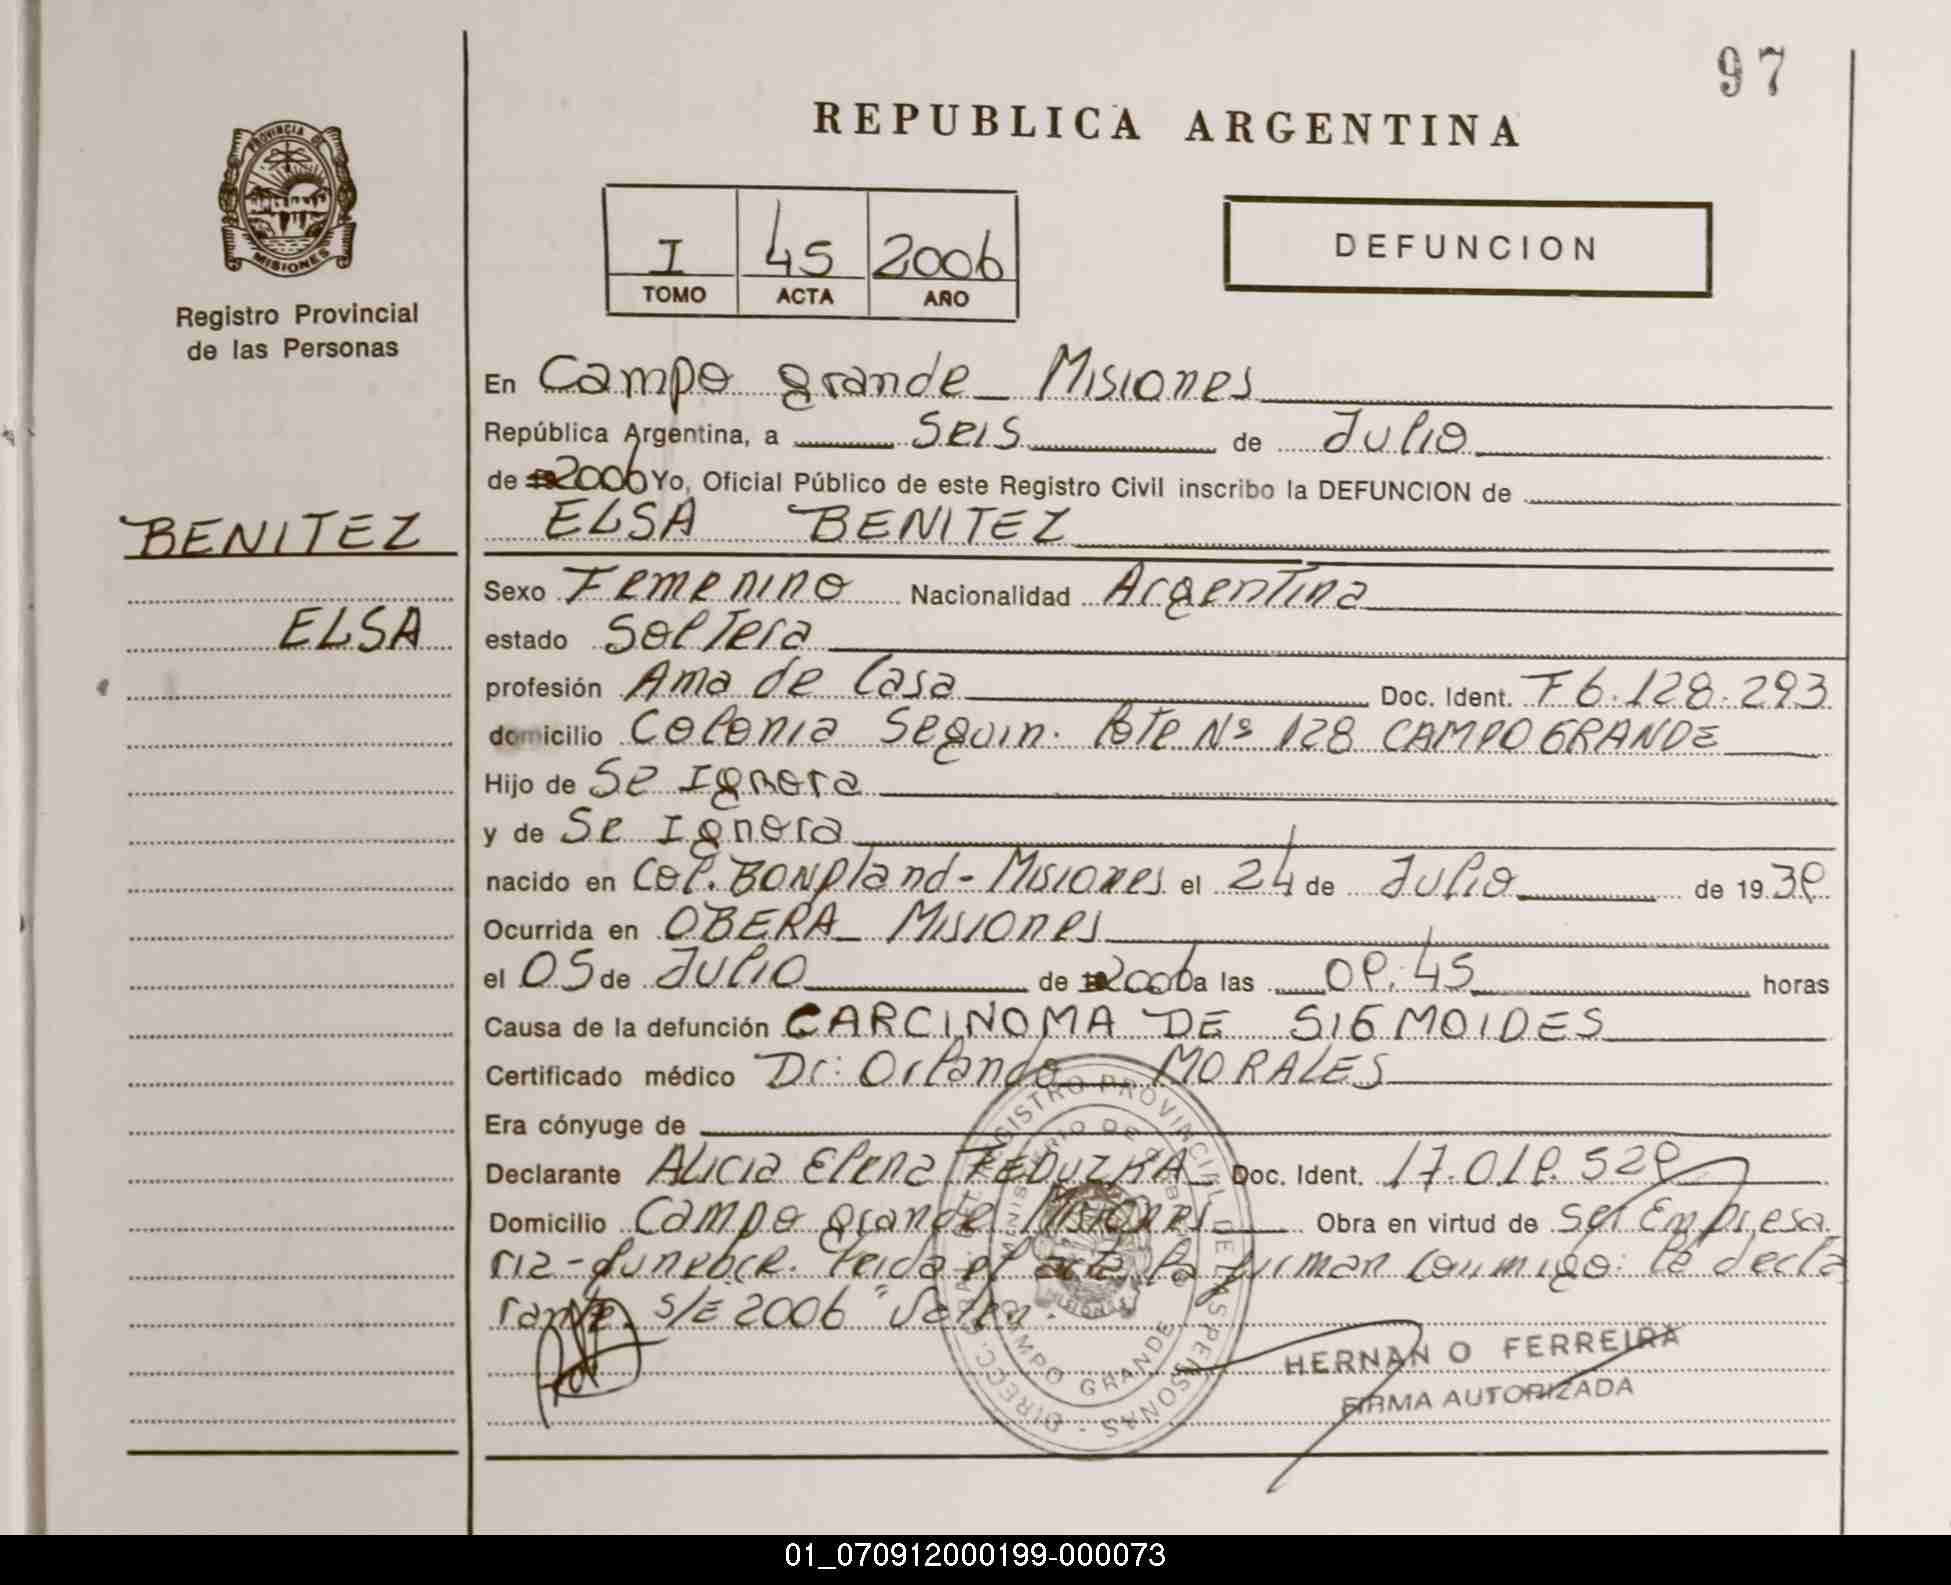 97
REPUBLICA ARGENTINA
PROVINCIA DE
MISIONES
I 45 2006
TOMO ACTA AÑO
DEFUNCION
Registro Provincial
de las Personas
En Campo grande Misiones
República Argentina, a Seis de Julio
de 2006 Yo, Oficial Público de este Registro Civil inscribo la DEFUNCION de
BENITEZ
ELSA BENITEZ
Sexo Femenino Nacionalidad Argentina
ELSA
estado Soltera
profesión Ama de Casa Doc. Ident. F 6.128.293
domicilio Colonia Seguin. lote Nº 128 CAMPO GRANDE
Hijo de Se Ignora
y de Se Ignora
nacido en Col. BONpland - Misiones el 24 de Julio de 1939
Ocurrida en OBERA Misiones
el 05 de Julio de 2006 a las 09:45 horas
Causa de la defunción CARCINOMA DE SIGMOIDES
Certificado médico Dr: Orlando MORALES
Era cónyuge de
Declarante Alicia Elena Doc. Ident. 17.019.529
Domicilio Campo grande Misiones Obra en virtud de Ser Empresa
ria-funebre. leida el acta la firman conmigo: la decla
rante. S/E 2006 "Valen.
DIRECC. GRAL. DEL REGISTRO PROVINCIAL DE LAS PERSONAS
MINISTERIO DE
CAMPO GRANDE
MISIONES
HERNAN O FERREIRA
FIRMA AUTORIZADA
01_070912000199-000073